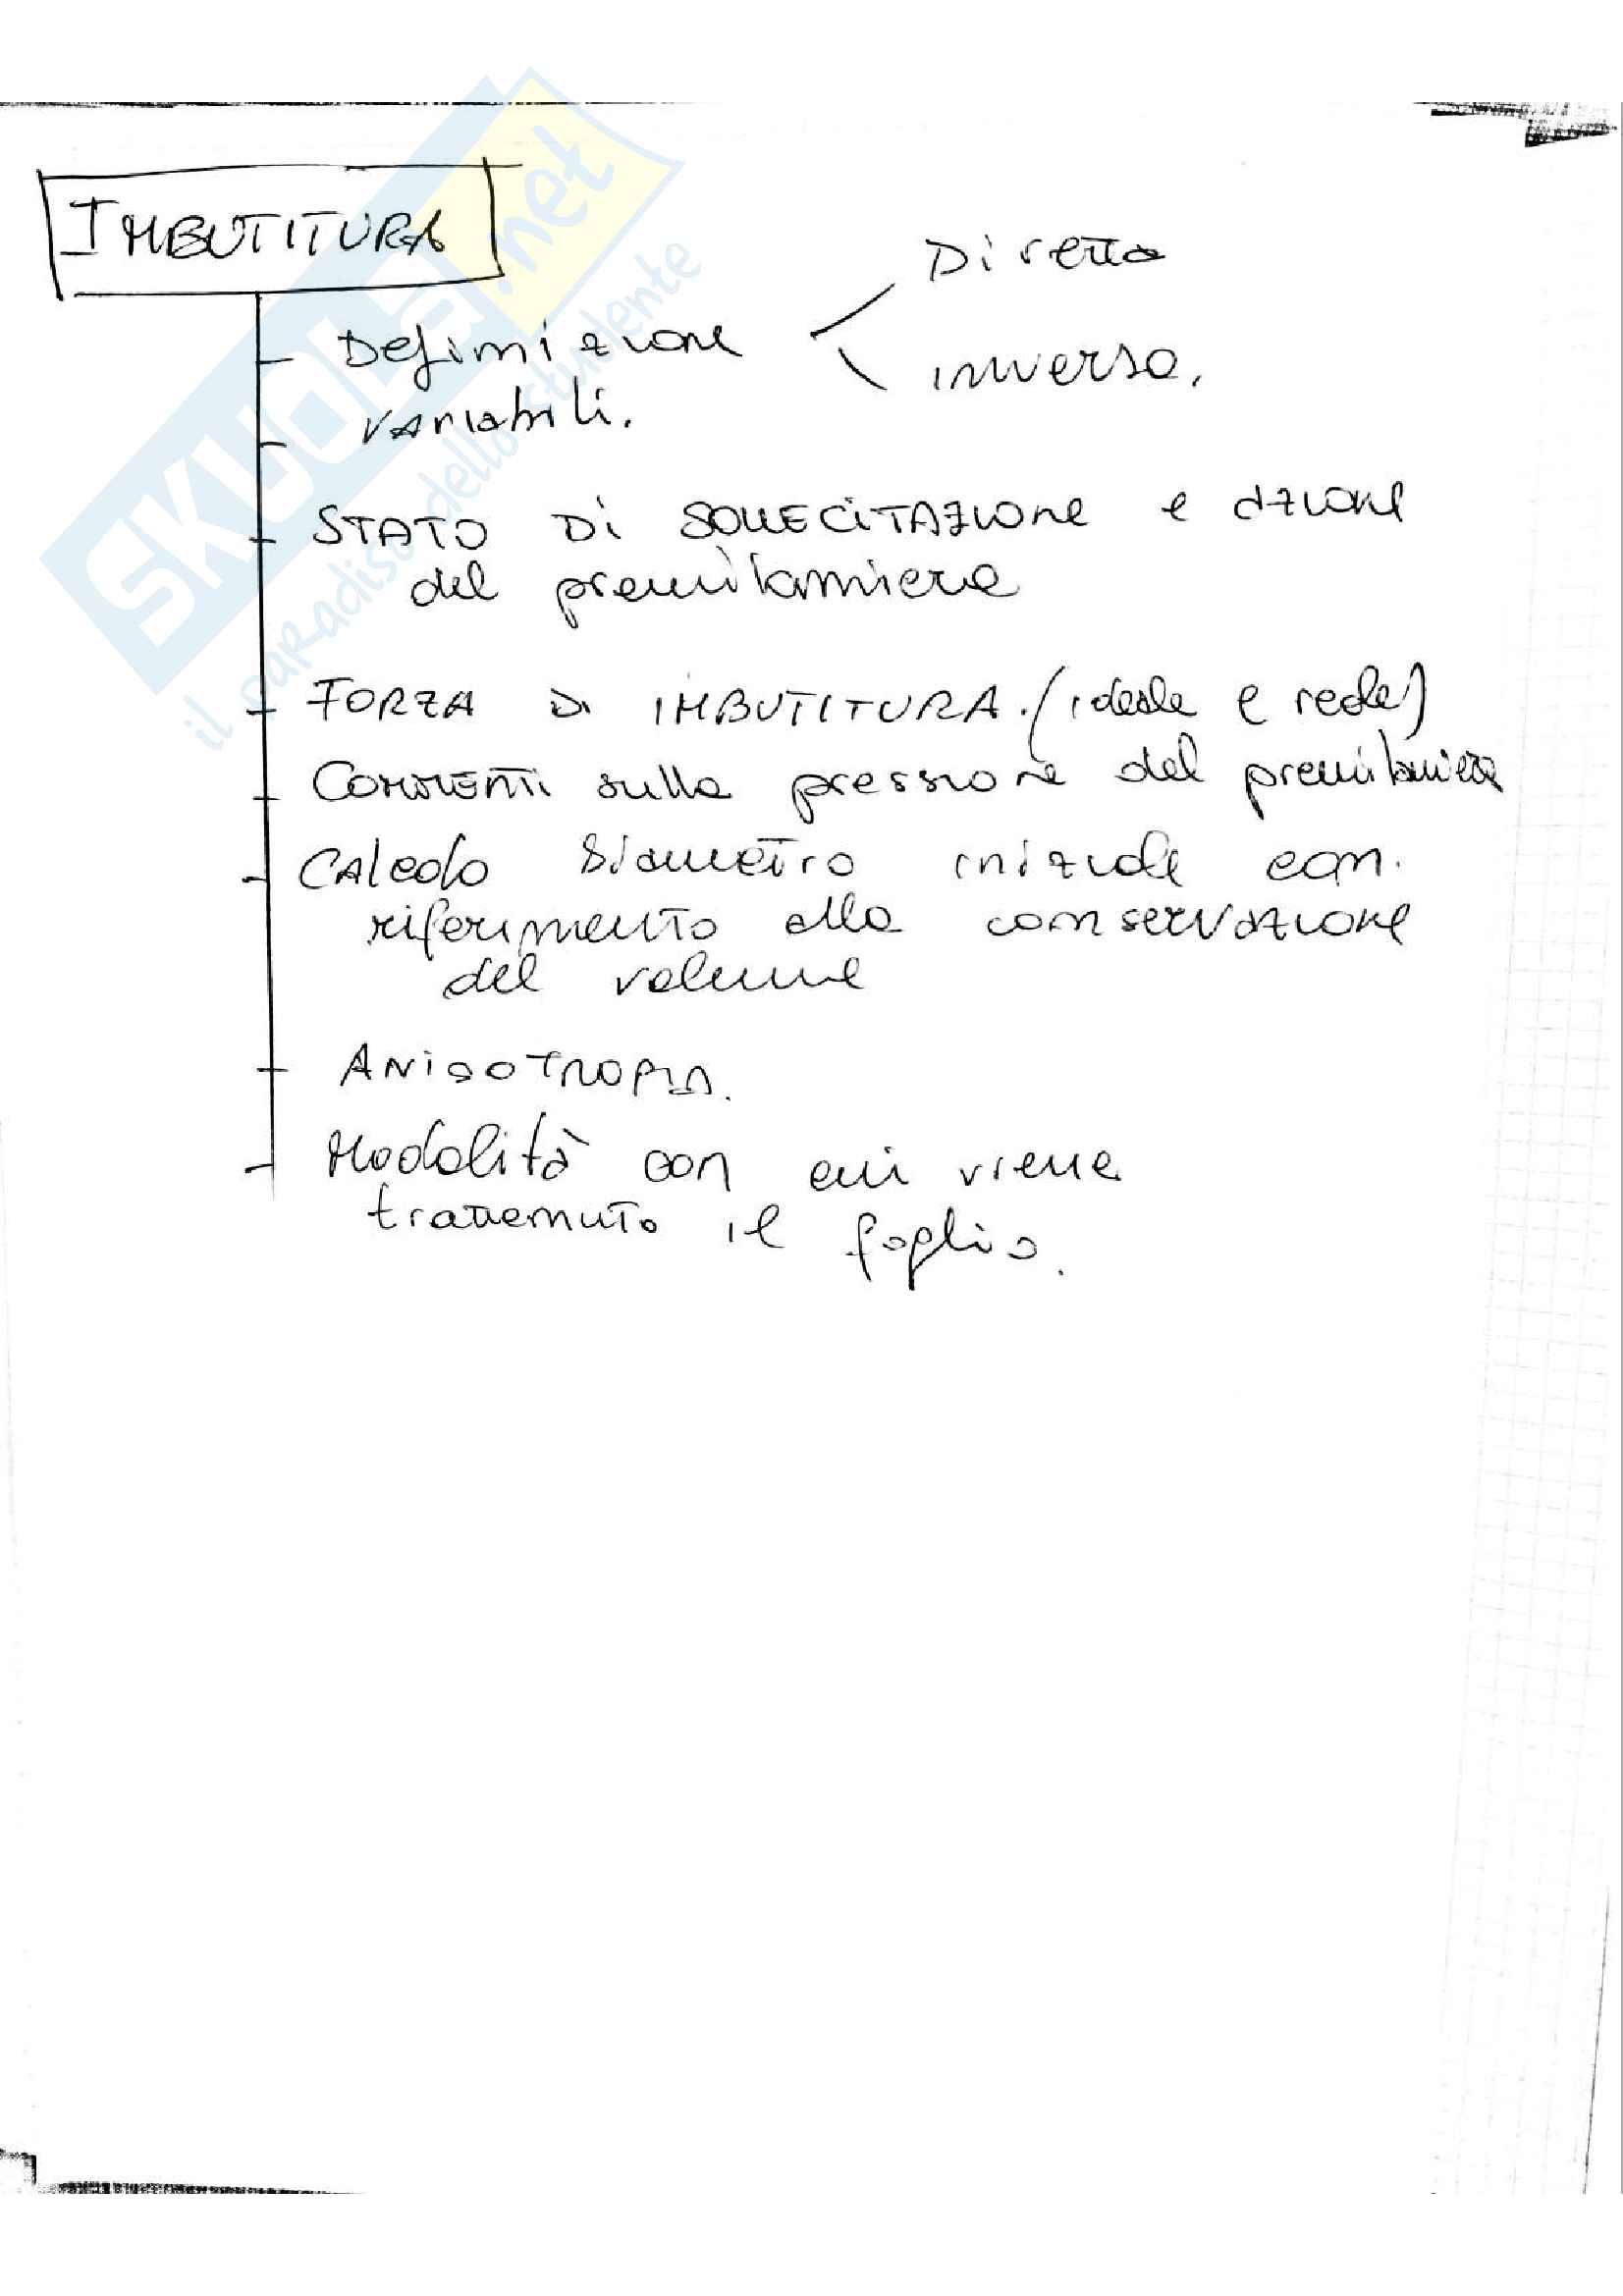 IMBUTITURA
Diretta
Definizione
inversa.
variabili.
STATO Di SOLLECITAZIONE e azione
del premilamiera
FORZA DI IMBUTITURA. (ideale e reale)
COMMENTI sulla pressione del premilamiera
CALCOLO Diametro iniziale con
riferimento alla conservazione
del volume
ANISOTROPIA.
Modalità con cui viene
trattenuto il foglio.
SKUOLA.net
il paradiso dello studente